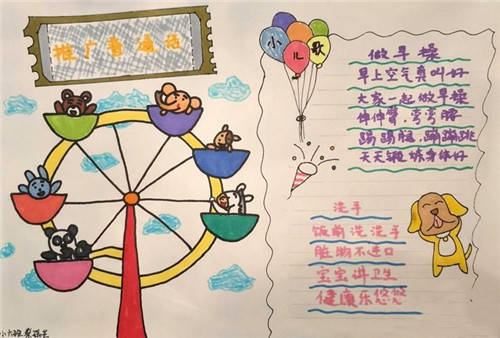 推广普通话
小儿歌
做早操
早上空气真叫好
大家一起做早操
伸伸臂，弯弯腰
踢踢腿，蹦蹦跳
天天锻炼身体好
洗手
饭前洗洗手
脏物不进口
宝宝讲卫生
健康乐悠悠